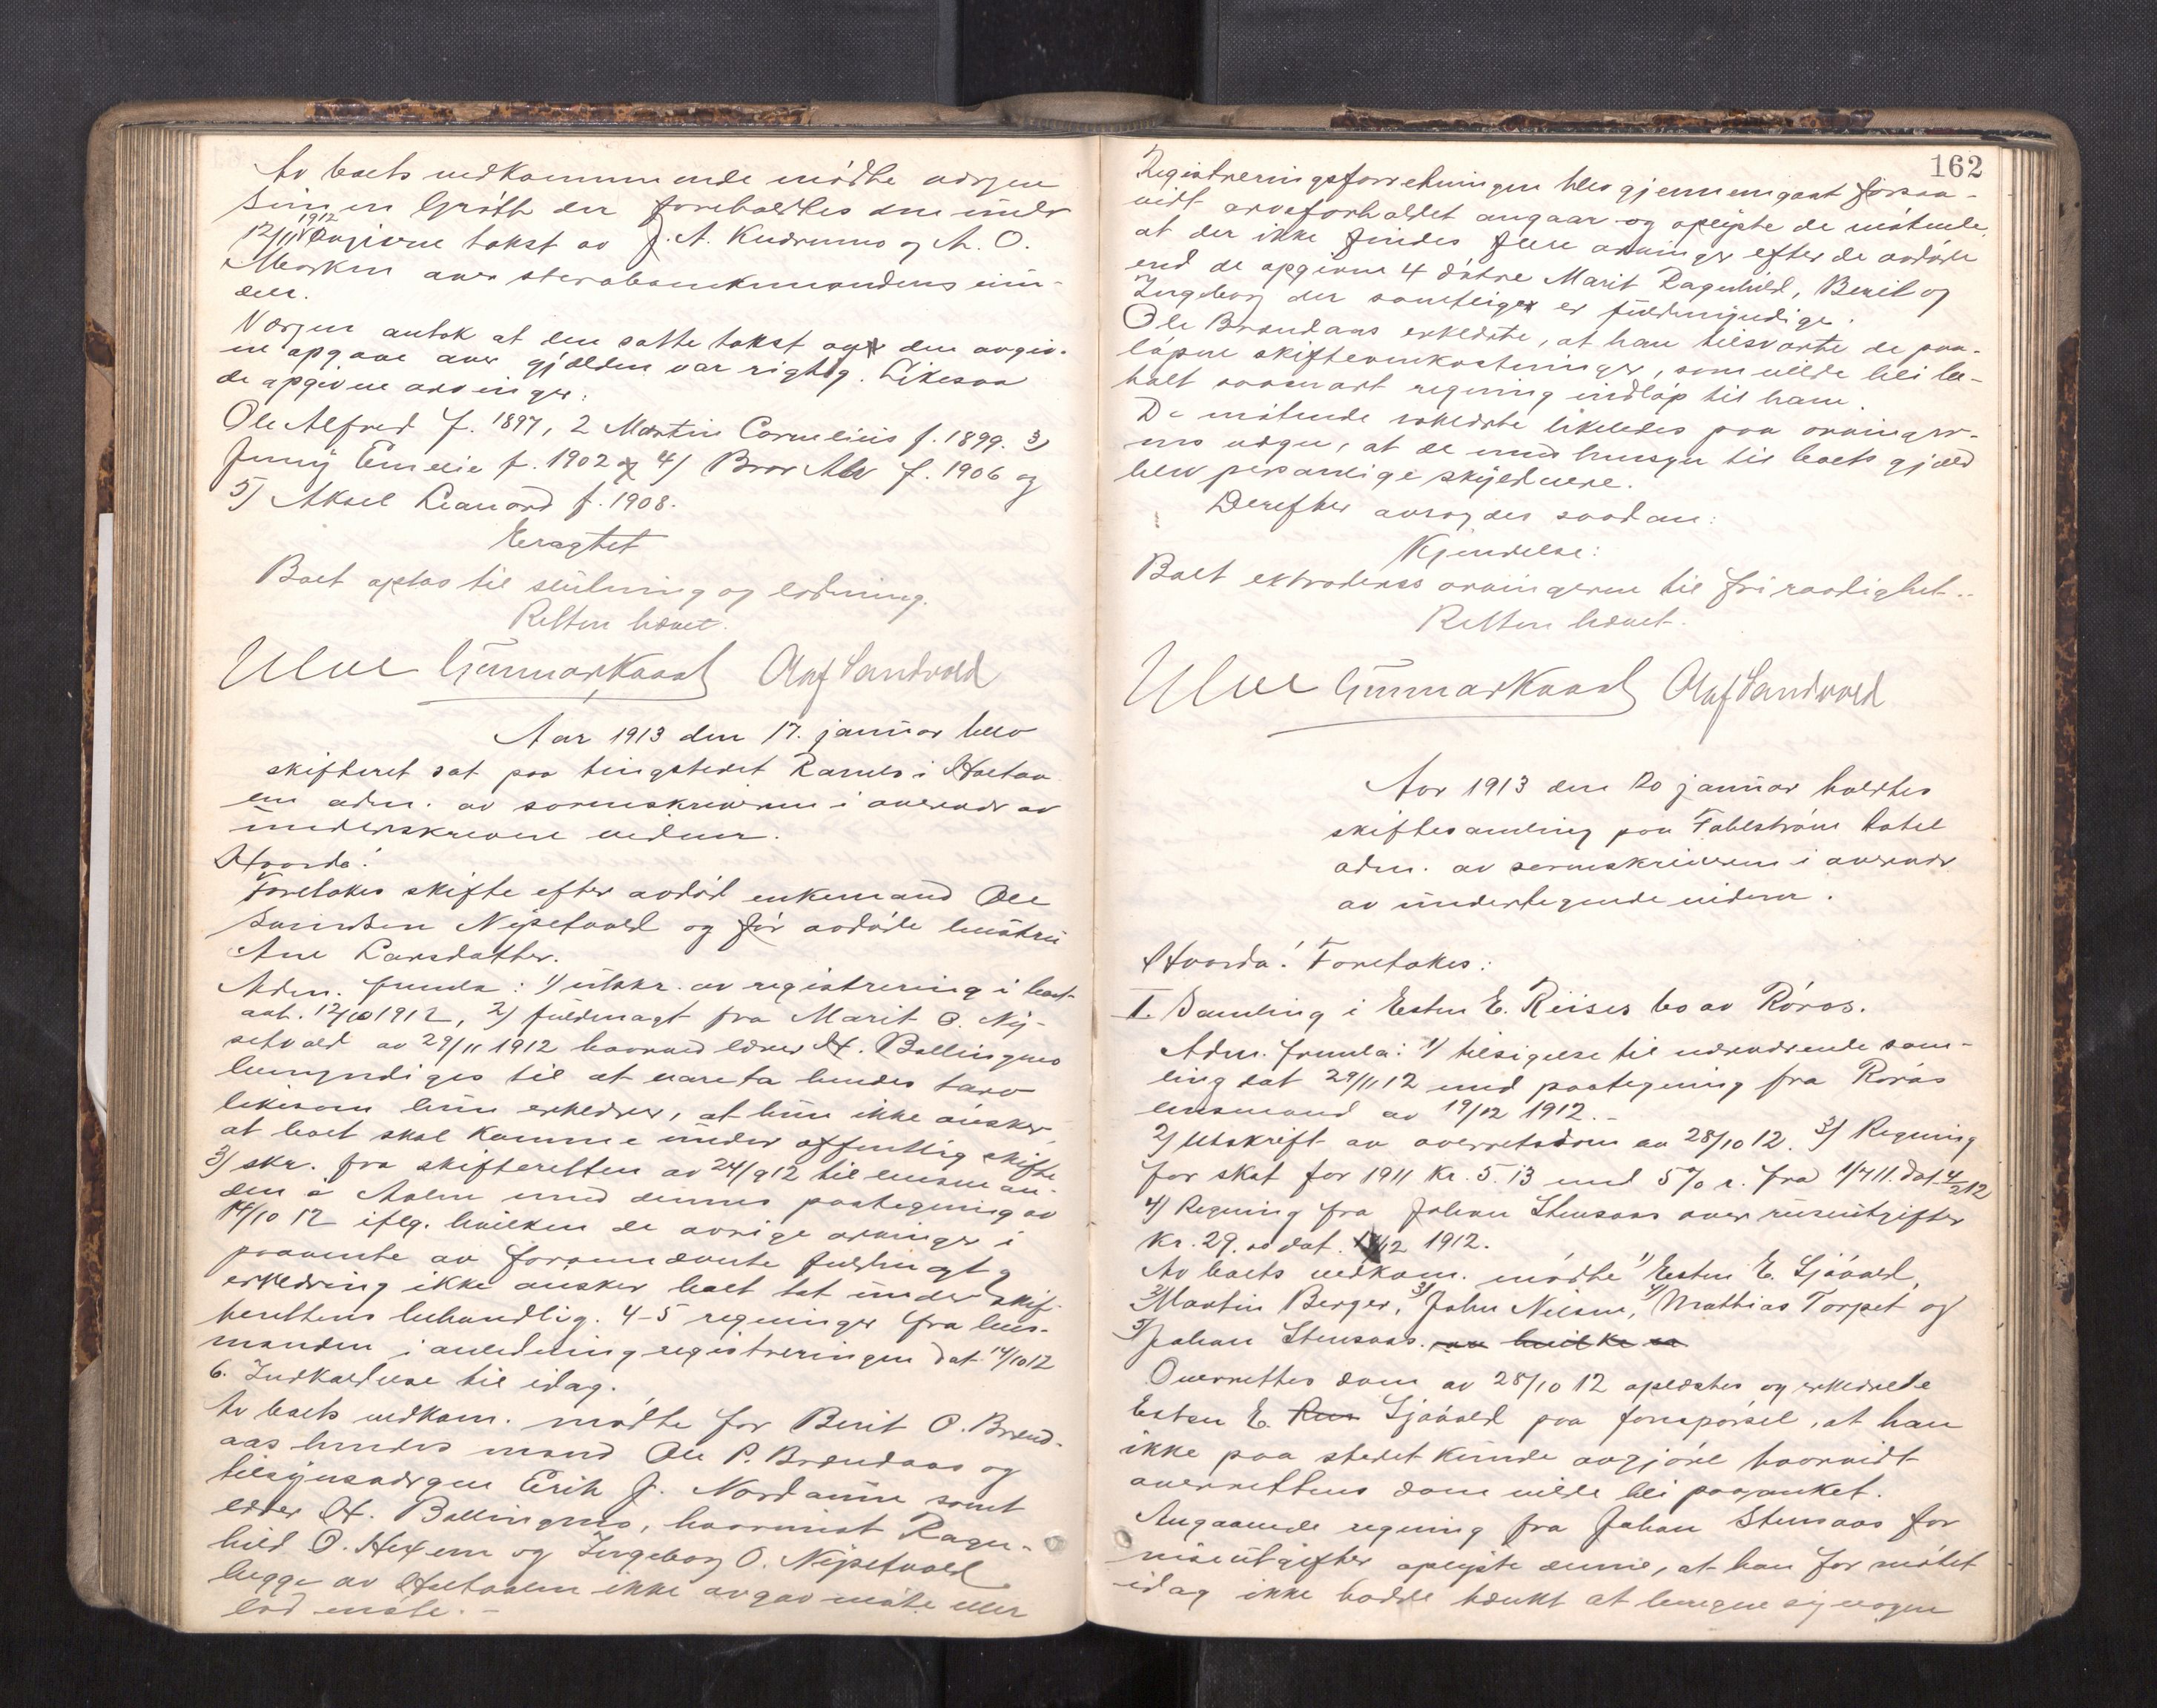 Av boets vedkommende mødte værgen
Simen Grøtt der foreholdtes den under
12/11 1912 avgivne takst av J. A. Kudrumo og A. O.
Morken over stervbomkemandens ein-
dele.
Værgen antok at den satte takst og den avgiv-
ne opgave over gjælden var rigtig. Likesaa
de opgivne arvinger:
Ole Alfred f. 1897, 2 Martin Cornelius f. 1899. 3)
Jenny Emelie f. 1902 og 4) Bror Alv f. 1906 og
5) Aksel Leanord f. 1908.
Eragtet
Boet optas til slutning og lodning.
Retten hævet.
Ulve Gunnar Kaast Olaf Sandvold
Aar 1913 den 17. januar blev
skifteret sat paa tingstedet Ramlo i Haltaa
en adm. av sorenskriveren i overvær av
underskrevne vidner.
Hvorda!
Foretokes skifte efter avdød enkemand Ole
Simensen Nysetvold og før avdøde hustru
Ane Larsdatter.
Adm. fremla: 1) utskr. av registrering i boet
avh. 12/10 1912, 2) fuldmagt fra Marit O. Ny-
setvold av 29/11 1912 hvorved lærer H. Bollingmo
bemyndiges til at vareta hendes tarv
likesom hun erklærer, at hun ikke ønsker
at boet skal komme under offentlig skifte
3) skr. fra skifteretten av 24/9 12 til lensman-
den i Aalen med dennes paategning av
14/10 12 iflg. hvilken de øvrige arvinger i
paavente av forannævnte fuldmagt og
erklæring ikke ønsker boet tat under skif-
terettens behandlig. 4-5 regninger fra lens-
manden i anledning registreringen dat. 14/10 12
6. Indkaldelse til idag.
Av boets vedkom. mødte for Berit O. Brænd-
aas hendes mand Ole P. Brændaas og
tilsynsværgen Erik J. Nordaune samt
lærer H. Bollingmo, hvorimot Ragn-
hild O. Hexem og Ingeborg O. Nysetvold
begge av Haltaalen ikke avgav møte eller
lod møte. -
162
Registreringsforretningen blev gjennemgaat forsaa-
vidt arveforholdet angaar og oplyste de møtende,
at der ikke findes flere arvinger efter de avdøde
end de opgivne 4 døtre Marit Ragnhild, Berit og
Ingeborg der samtlige er fuldmyndige.
Ole Brændaas erklærte, at han tilsvarte de paa-
løpne skifteomkostninger, som vilde bli be-
talt saasnart regning indløp til ham.
De møtende erklærte likeledes paa arvinger-
nes vegne, at de med hensyn til boets gjæld
blev personlige skyldnere.
Derefter avsagdes saadan:
Kjendelse:
Boet extraderes arvingerne til fri raadighet..
Retten hævet.
Ulve Gunnar Kaast Olaf Sandvold
Aar 1913 den 20 januar holdtes
skiftesamling paa Fahlstrøm hotel
adm. av sorenskriveren i overvær
av undertegnede vidner.
Hvorda! Foretokes:
I. Samling i Esten E. Reises bo av Røros.
Adm. fremla: 1) tilsigelse til nærværende sam-
ling dat 29/11 12 med paategning fra Røros
lensmand av 19/12 1912. -
2) Utskrift av overretsdom av 28/10 12. 3) Regning
for skat for 1911 kr. 5.13 med 5% r. fra 1/7 11. dat. 4/2 12
4) Regning fra Johan Stensaas over reiseutgifter
kr. 29.00 dat. 12 1912.
Av boets vedkom. mødte 1) Esten E. Sjøvold,
2) Martin Berger, 3) John Nilsen, 4) Mathias Torpet og
5) Johan Stensaas. hvilke
Overrettes dom av 28/10 12 oplæstes og erklærte
Esten E. Sjøvold paa forespørsel, at han
ikke paa stedet kunde avgjøre hvorvidt
overrettens dom vilde bli paaanket.
Angaaende regning fra Johan Stensaas for
reiseutgifter oplyste denne, at han for møtet
idag ikke hadde tænkt at beregne sig nogen